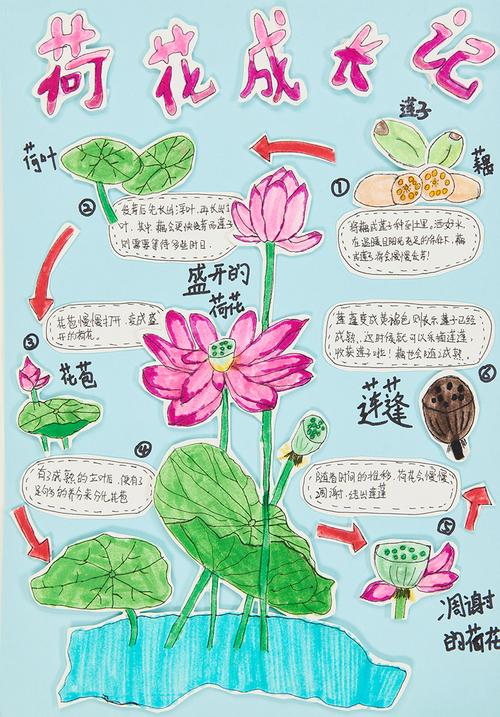 荷花成长记
莲子
藕
荷叶
①
将藕或莲子种到土里,浇好水
在温暖且阳光充足的条件下,藕
或莲子将会慢慢发芽!
②
发芽后先长出浮叶,再长出立
叶。其中,藕会更快发芽而莲子
则需要等待多些时日.
盛开的
荷花
花苞慢慢打开,变成盛
开的荷花。
③
花苞
莲蓬变成黄褐色则表示莲子已经
成熟,这时候就可以采摘莲蓬
收获莲子啦!藕也会随之成熟.
⑥
莲蓬
④
有了成熟的立叶后,便有了
足够多的养分来分化花苞
随着时间的推移,荷花会慢慢
凋谢,结出莲蓬
⑤
凋谢
的荷花